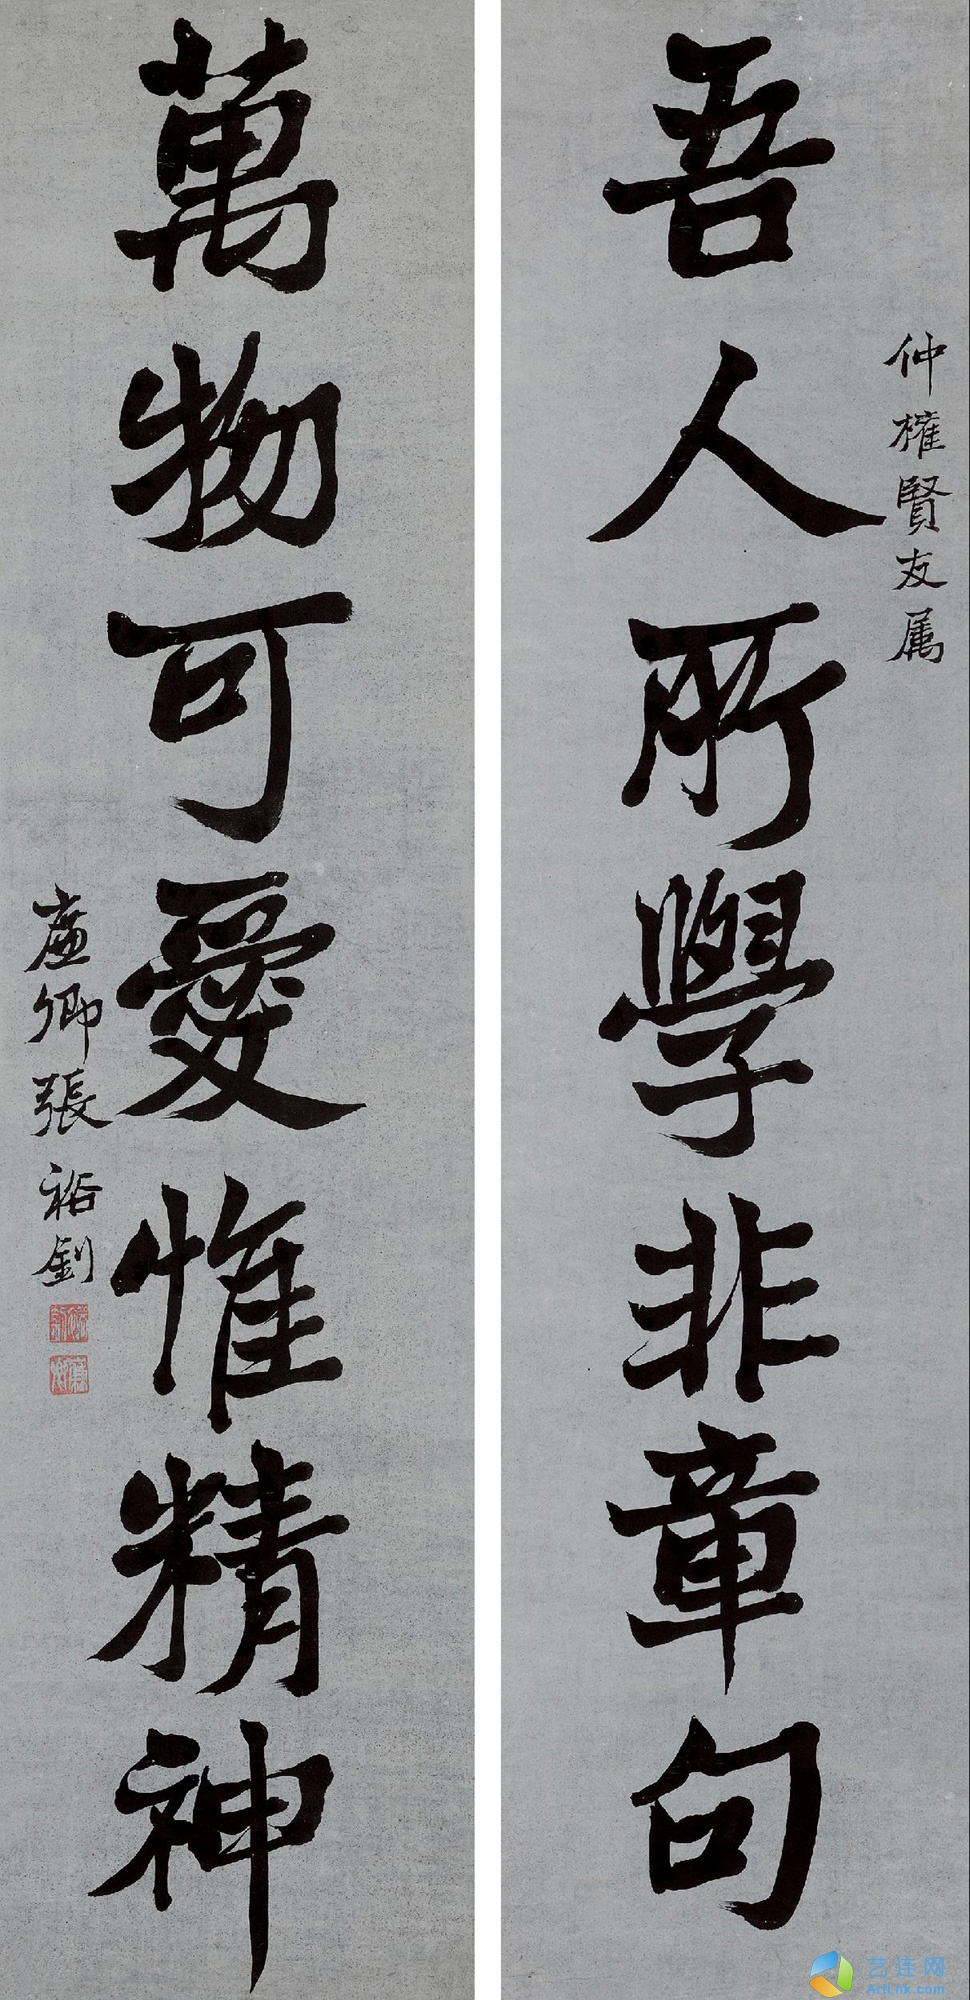 吾人所學非章句
仲權賢友属
萬物可愛惟精神
廉卿張裕釗
艺连网
ArtLnk.com